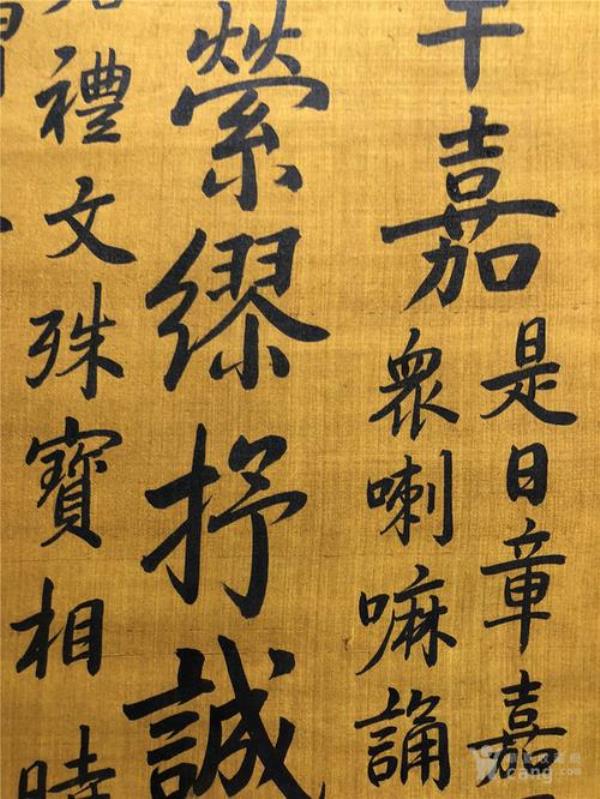 嘉
是日章嘉
衆喇嘛誦
縈繆抒誠
禮文殊寶相
cang.com